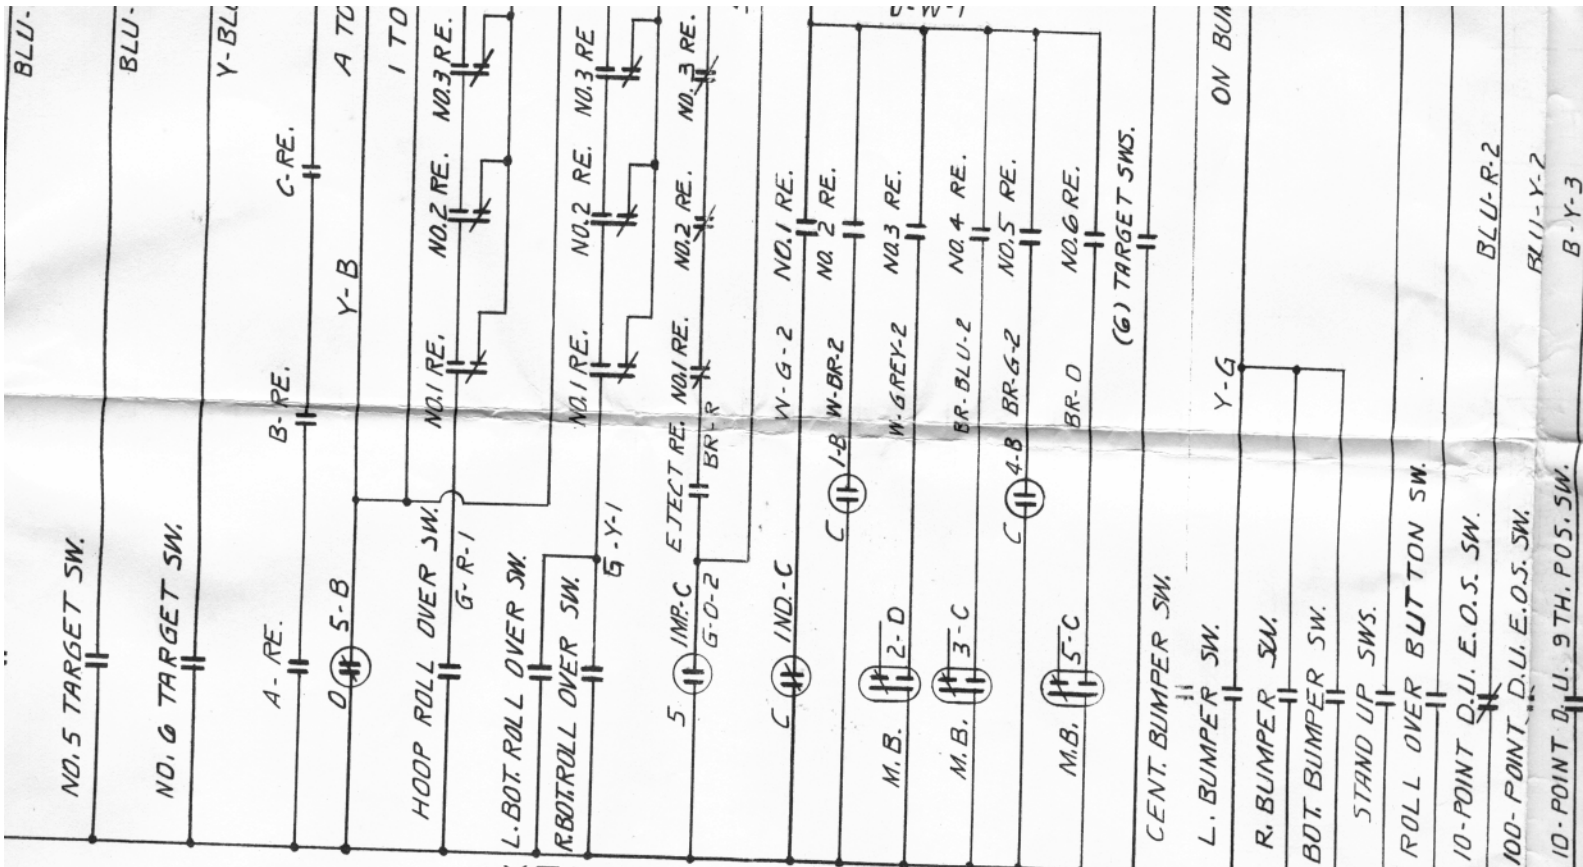 BLU-
NO. 5 TARGET SW.
BLU-
NO. 6 TARGET SW.
Y-BLU
A- RE.
B-RE.
C-RE.
O 5-B
Y-B
A TO
1 TO
HOOP ROLL OVER SW.
G-R-1
NO.1 RE.
NO.2 RE.
NO.3 RE.
L. BOT. ROLL OVER SW.
R.BOT.ROLL OVER SW.
G-Y-1
NO.1 RE.
NO.2 RE.
NO.3 RE
5 IMP.-C
G-O-2
EJECT RE.
BR-R
NO.1 RE.
NO.2 RE.
NO.3 RE.
C IND.-C
W-G-2
NO.1 RE.
C 1-B
W-BR-2
NO. 2 RE.
M.B. 2-D
W-GREY-2
NO.3 RE.
M.B. 3-C
BR-BLU-2
NO.4 RE.
C 4-B
BR-G-2
NO.5 RE.
M.B. 5-C
BR-O
NO.6 RE.
CENT. BUMPER SW.
(6) TARGET SWS.
L. BUMPER SW.
Y-G
ON BUM
R. BUMPER SW.
BOT. BUMPER SW.
STAND UP SWS.
ROLL OVER BUTTON SW.
10-POINT D.U. E.O.S. SW.
BLU-R-2
100-POINT D.U. E.O.S. SW.
BLU-Y-2
10-POINT D.U. 9TH. POS. SW.
B-Y-3